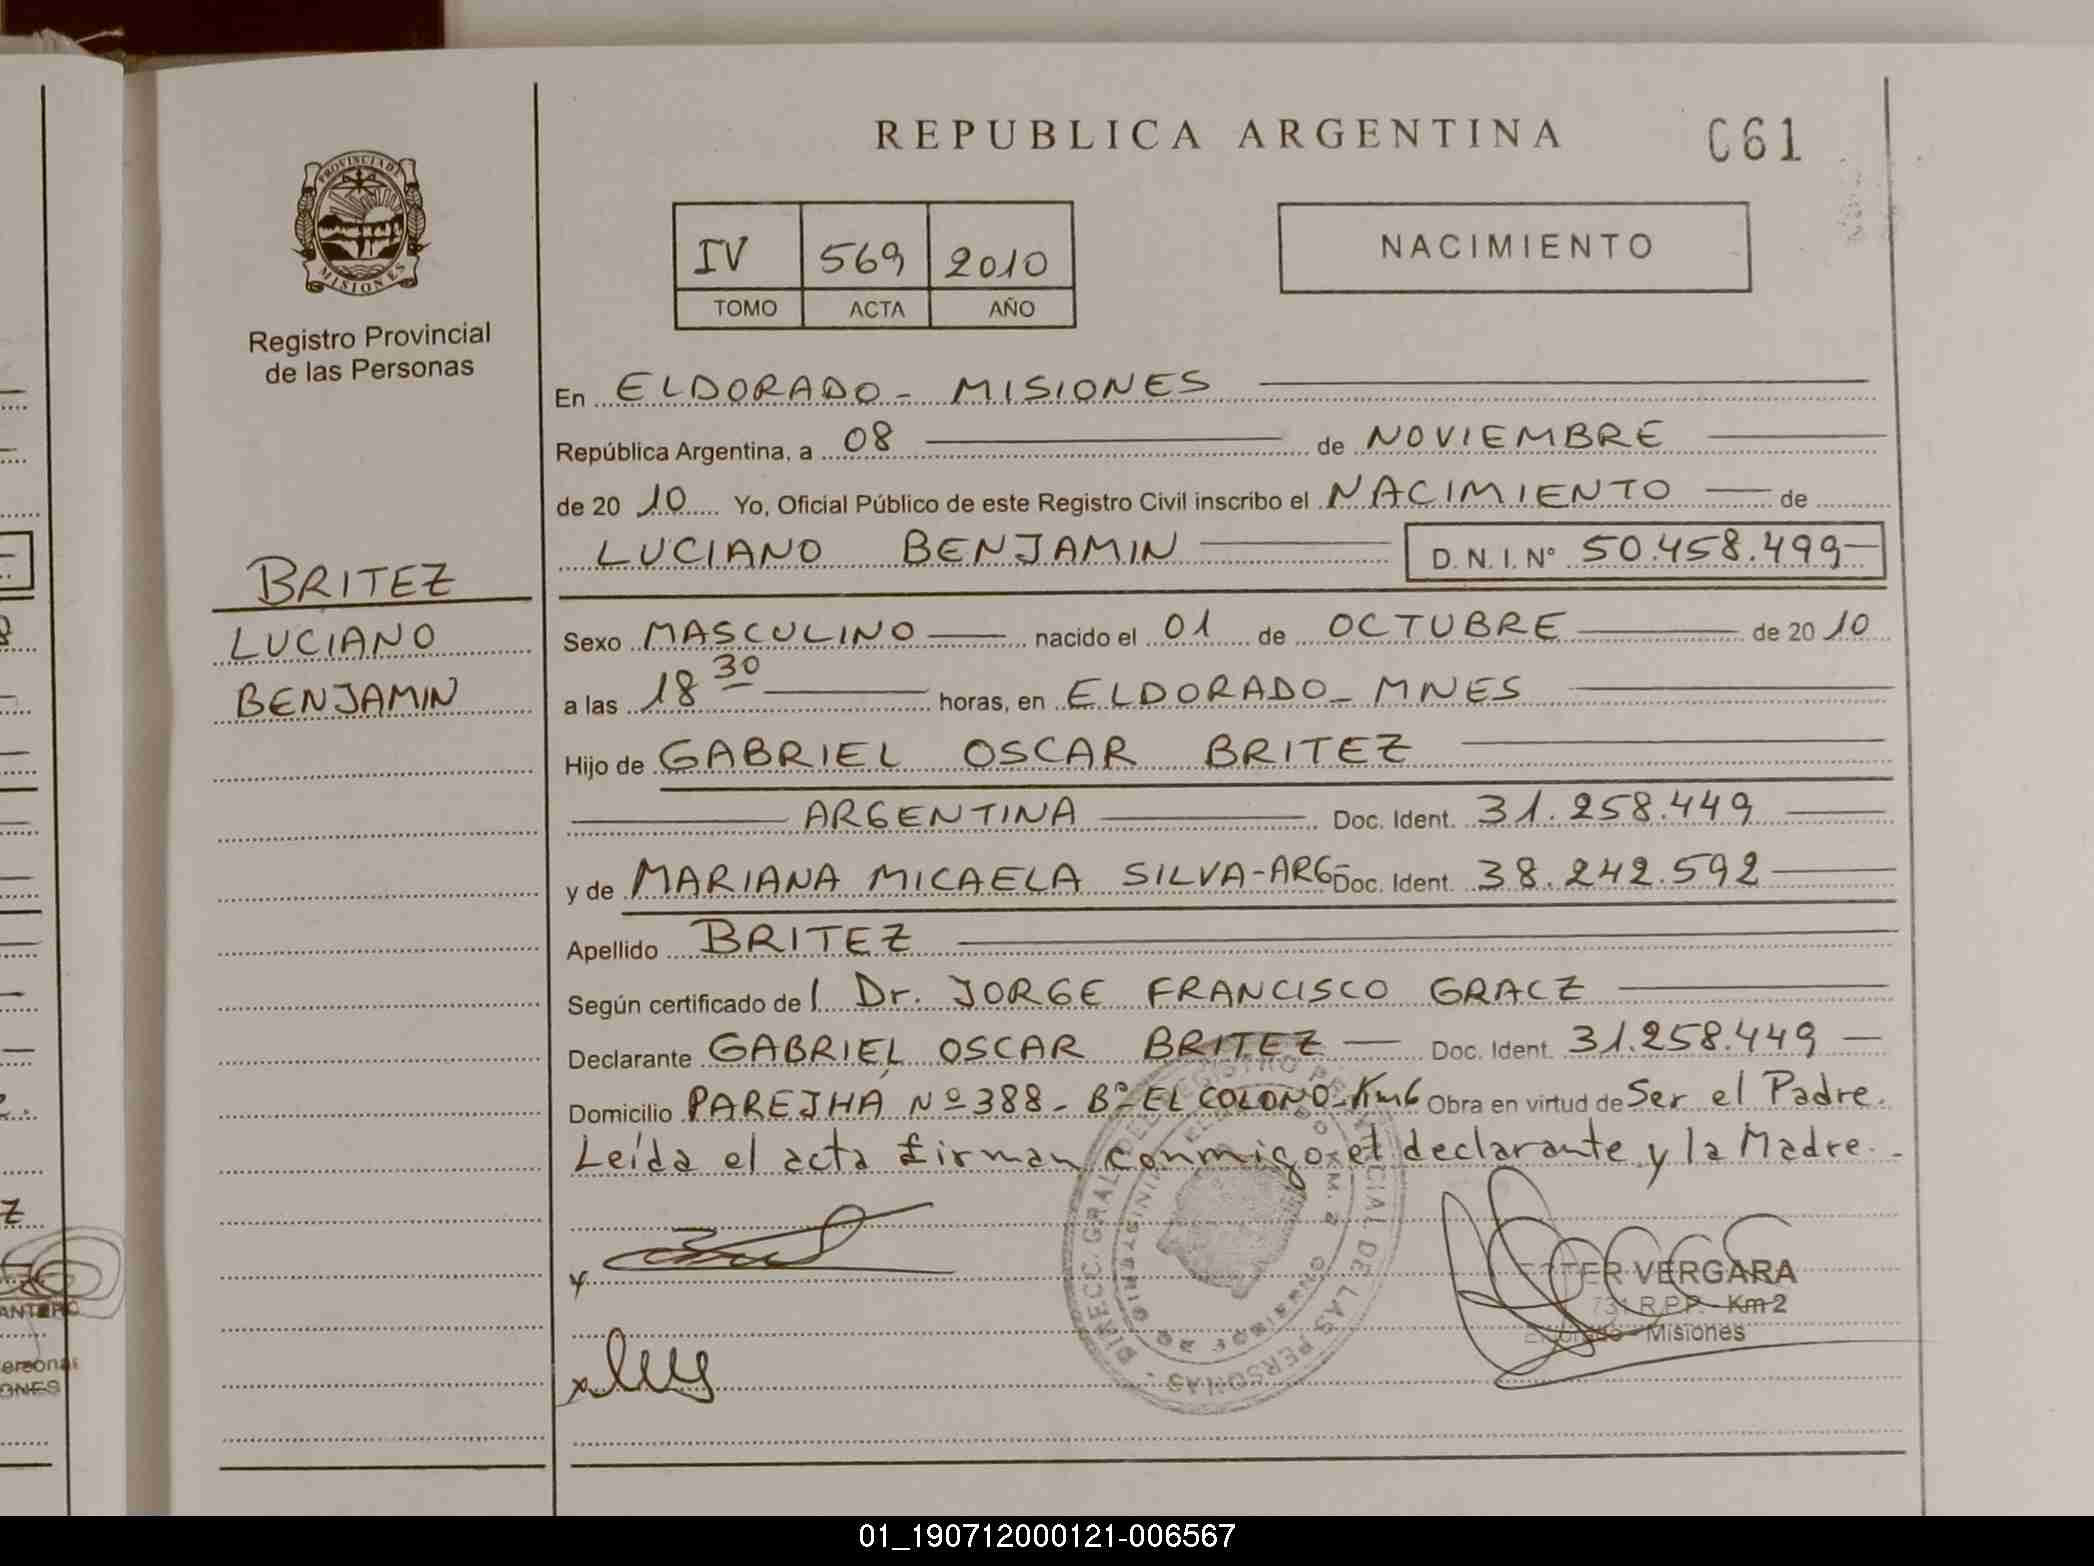 REPUBLICA ARGENTINA
C61
PROVINCIA DE
MISIONES
Registro Provincial
de las Personas
IV 569 2010
TOMO ACTA AÑO
NACIMIENTO
En ELDORADO - MISIONES
República Argentina, a 08 de NOVIEMBRE
de 20 10 Yo, Oficial Público de este Registro Civil inscribo el NACIMIENTO de
LUCIANO BENJAMIN D. N. I. Nº 50.458.499
BRITEZ
LUCIANO
BENJAMIN
Sexo MASCULINO nacido el 01 de OCTUBRE de 20 10
a las 18 30 horas, en ELDORADO - MNES
Hijo de GABRIEL OSCAR BRITEZ
ARGENTINA Doc. Ident. 31.258.449
y de MARIANA MICAELA SILVA-ARG- Doc. Ident. 38.242.592
Apellido BRITEZ
Según certificado de l Dr. JORGE FRANCISCO GRACZ
Declarante GABRIEL OSCAR BRITEZ Doc. Ident. 31.258.449
Domicilio PAREJHÁ Nº 388 - Bº EL COLONO - Km6 Obra en virtud de Ser el Padre.
Leída el acta firman conmigo el declarante y la Madre.-
DIRECC. GRAL. DEL REGISTRO PROVINCIAL DE LAS PERSONAS
VERGARA
R.P.P. - Km 2
Misiones
01_190712000121-006567